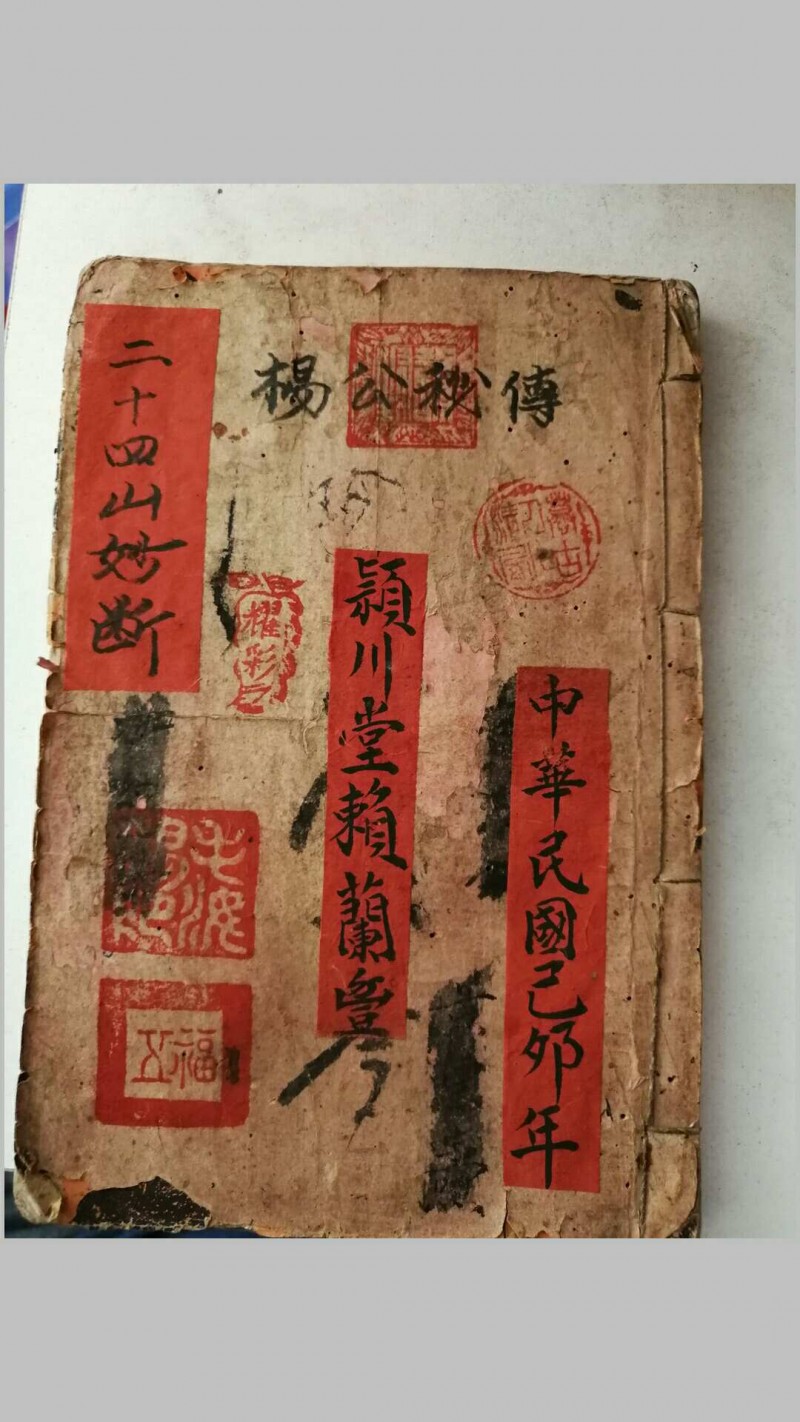 楊公秘傳
中華民國己夘年
潁川堂賴蘭豐
二十四山妙断
耀彩
福
五